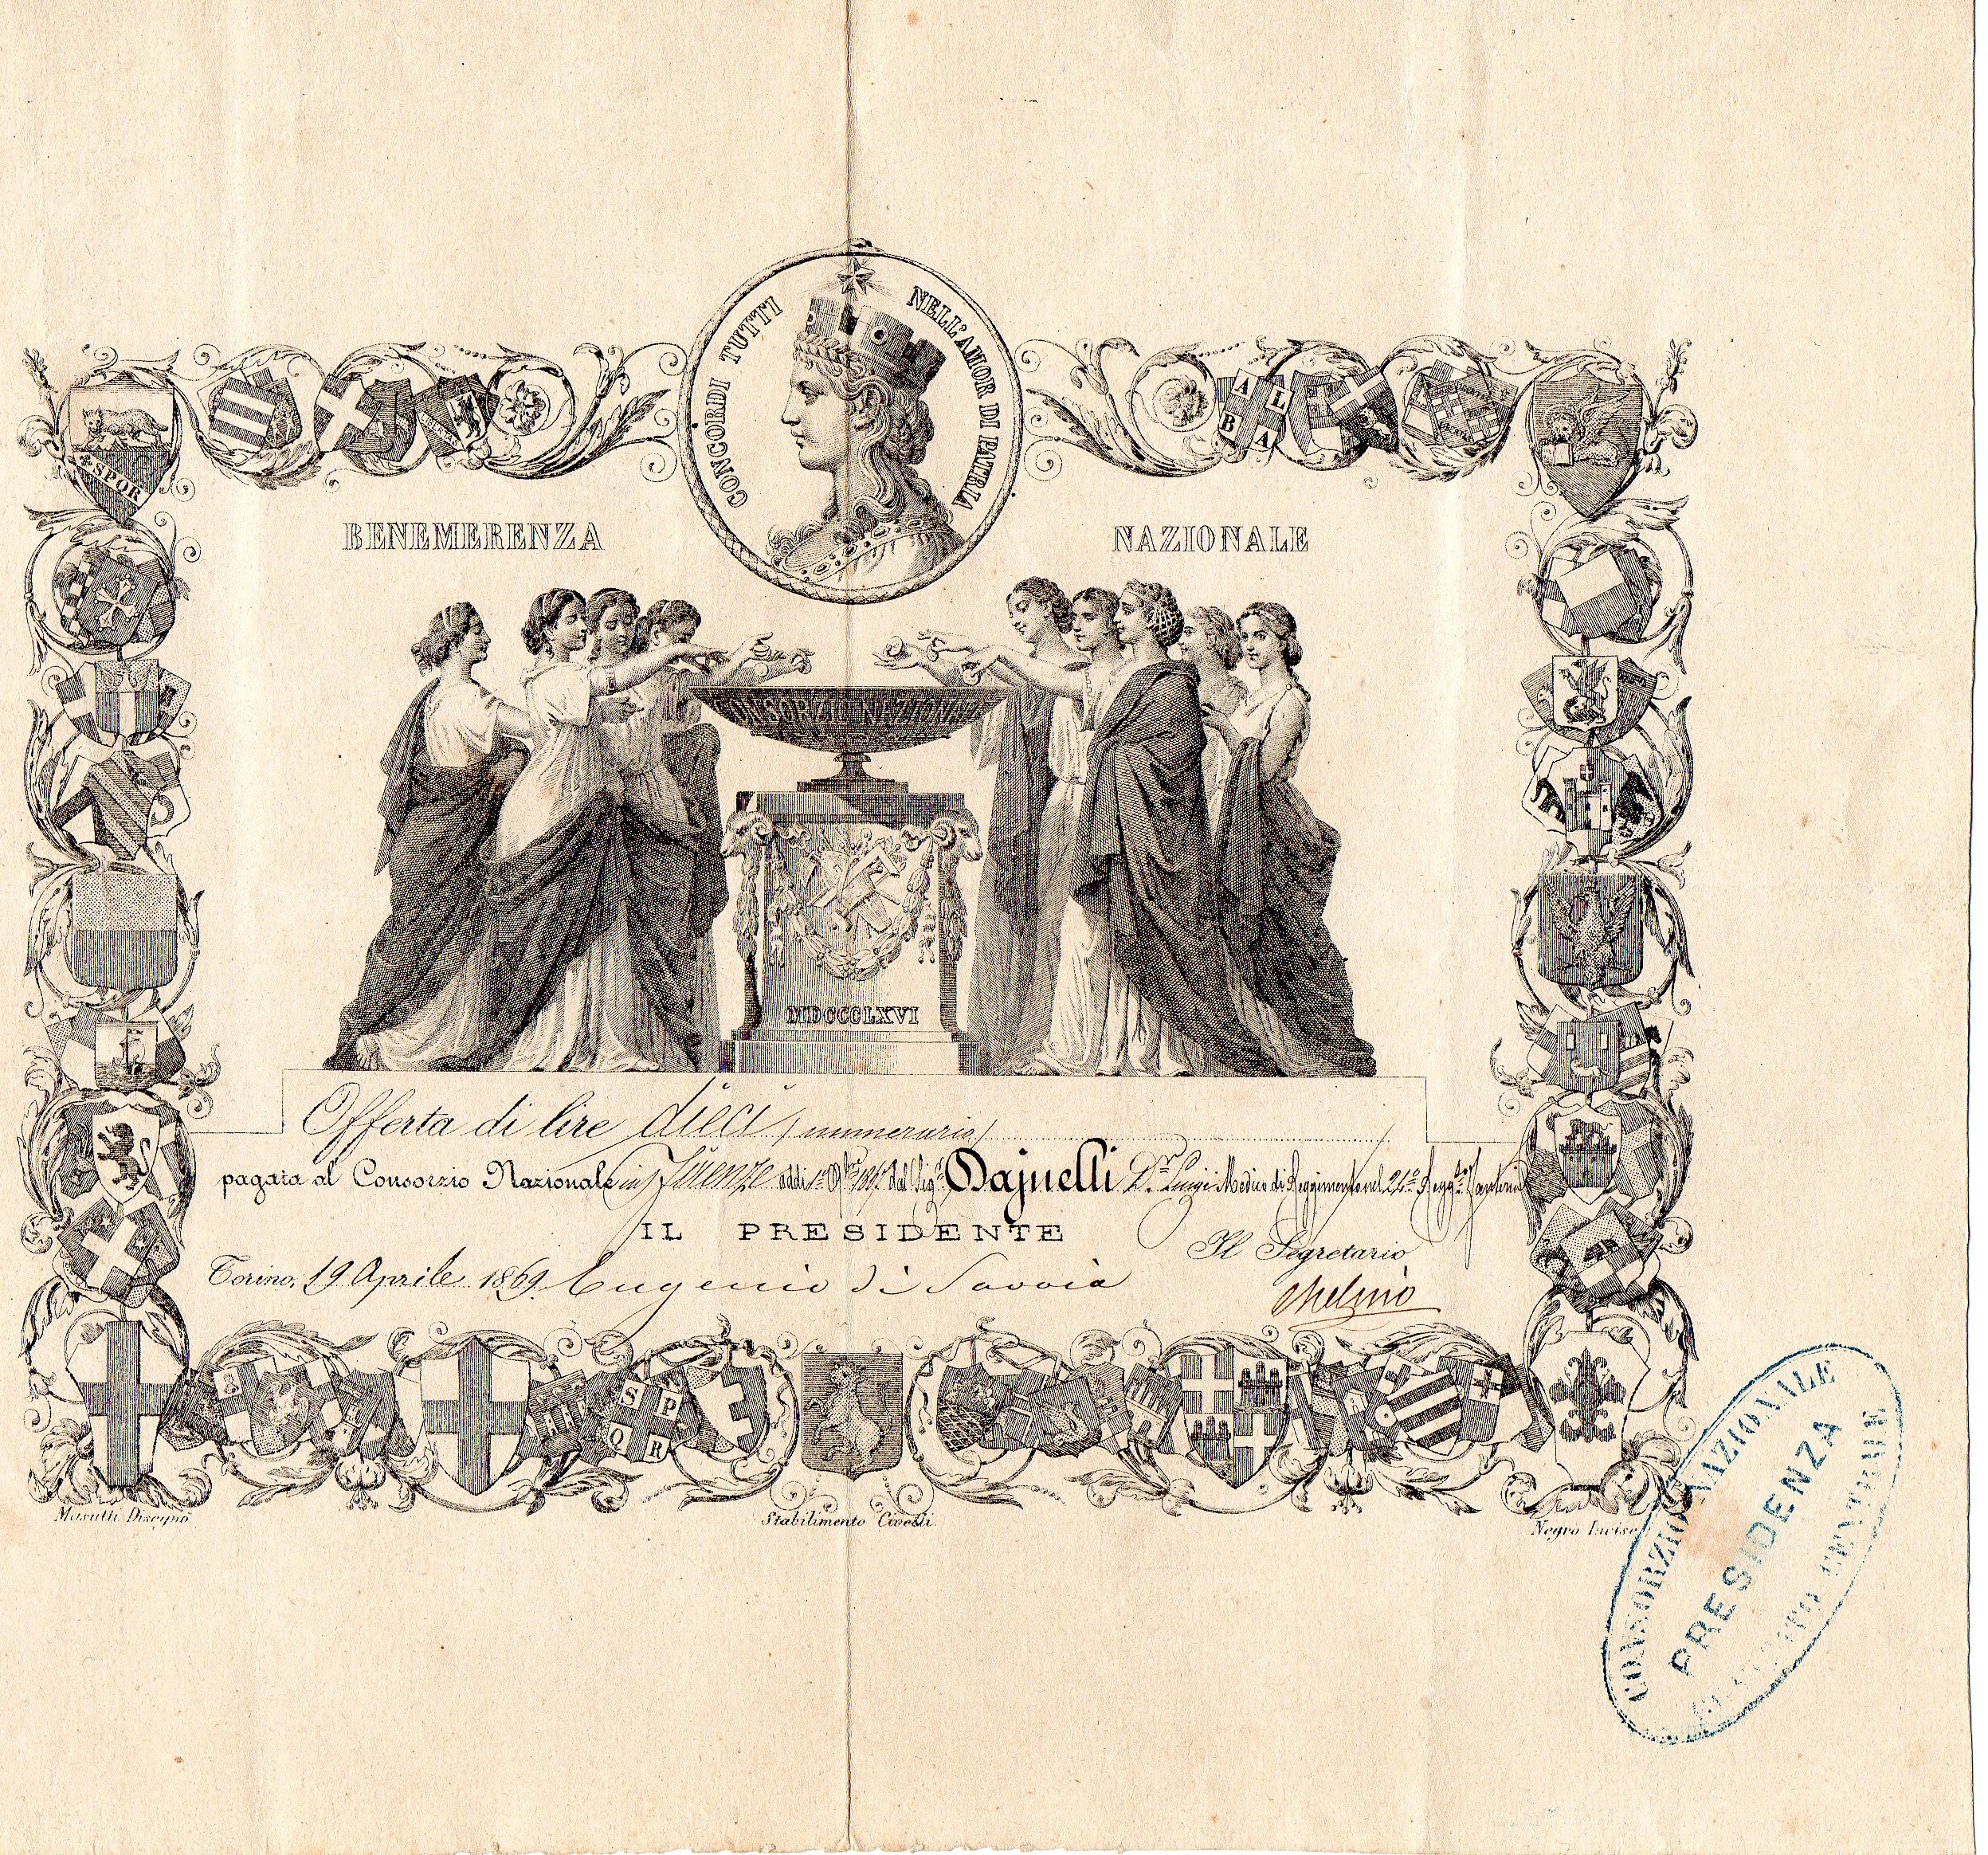 CONCORDI TUTTI NELL'AMOR DI PATRIA
SPOR
ALBA
BENEMERENZA NAZIONALE
CONSORZIO NAZIONALE
MDCCCLXVI
Offerta di lire dieci (numerario)
pagata al Consorzio Nazionale in Firenze addì 1º 186 dal Sigr Dajnelli Dr. Luigi Medico di Reggimento nel 24º Reggto Fanteria
IL PRESIDENTE
Il Segretario
Torino, 19 Aprile 1869. Eugenio di Savoia
SPQR
Masutti Disegnò
Stabilimento Civelli.
Negro Incise
CONSORZIO NAZIONALE
PRESIDENZA
COMITATO CENTRALE